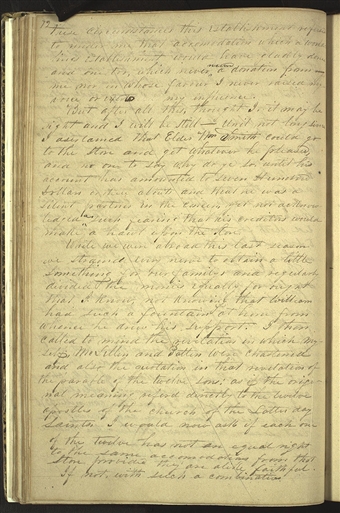 these circumstances this Establishment refuse
to render me that accomodation which a
this Establishment would have gladly done
and one too, which never received a donation from
me nor in whose favour I never raised my
voice or extend my influence.
But after all this, thought I, it may be
right and I will be still— Untill not long since
I ascertained that Elder Wm Smith could go
to the Store and get whatever he pleased,
and no one to say why do ye so, untill his
account has amounted to seven Hundred
Dollars or there abouts and that he was a
silent partner in the concern, yet not acknow
ledged as such fearing that his creditors would
make a haul upon the Store.
While we were abroad this last season
we strained every nerve to obtain a little
something for our familys and regularly
divided the monies equally for ought
that I know, not knowing that William
had such a fountain at home from
whence he drew his support. I then
called to mind the revelation in which my
self, McLellin and Patten were chastened
and also the quotation in that revelation of
the parable of the twelve sons; as if the origi
nal meaning referd directly to the twelve
apostles of the church of the Latter day
Saints. I would now ask if each one
of the twelve has not an equal right
to the same accomodations from that
Store provided they are alike faithful.
If not, with such a combination